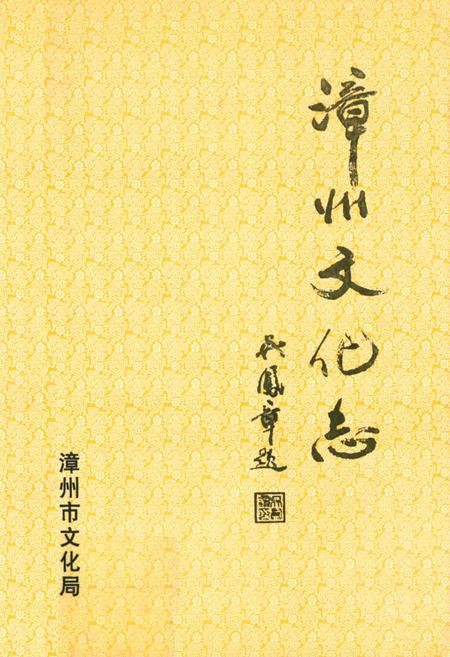 漳州文化志
吴鳳章题
漳州市文化局